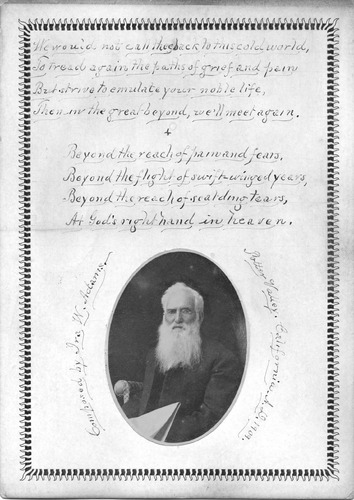 We would not call thee back to this cold world,
To tread again the paths of grief and pain
But strive to emulate your noble life,
Then in the great beyond, we'll meet again.
Beyond the reach of pain and fears,
Beyond the flight of swift-winged years,
Beyond the reach of scalding tears,
At God's right hand in heaven.
Composed by Ira W. Adams.
Valley, California. A.D. 1901.